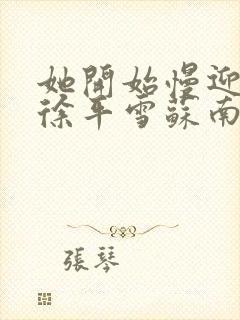 她開始慢迎
徐平雪蘇南
張琴